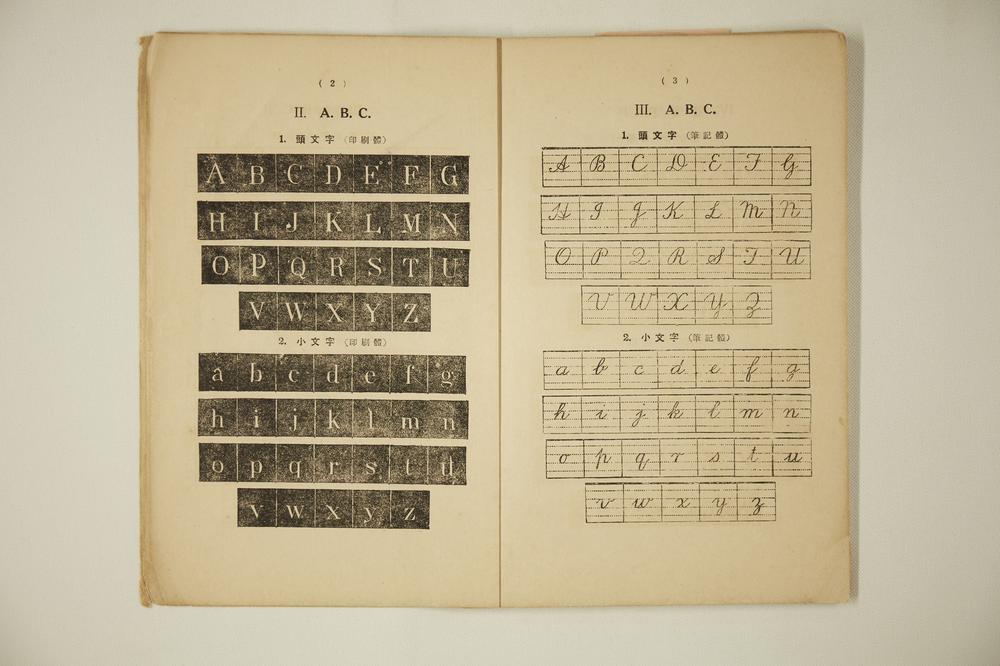 ( 2 )
II. A. B. C.
1. 頭文字 (印刷體)
A B C D E F G
H I J K L M N
O P Q R S T U
V W X Y Z
2. 小文字 (印刷體)
a b c d e f g
h i j k l m n
o p q r s t u
v w x y z
( 3 )
III. A. B. C.
1. 頭文字 (筆記體)
A B C D E F G
H I J K L M N
O P Q R S T U
V W X Y Z
2. 小文字 (筆記體)
a b c d e f g
h i j k l m n
o p q r s t u
v w x y z